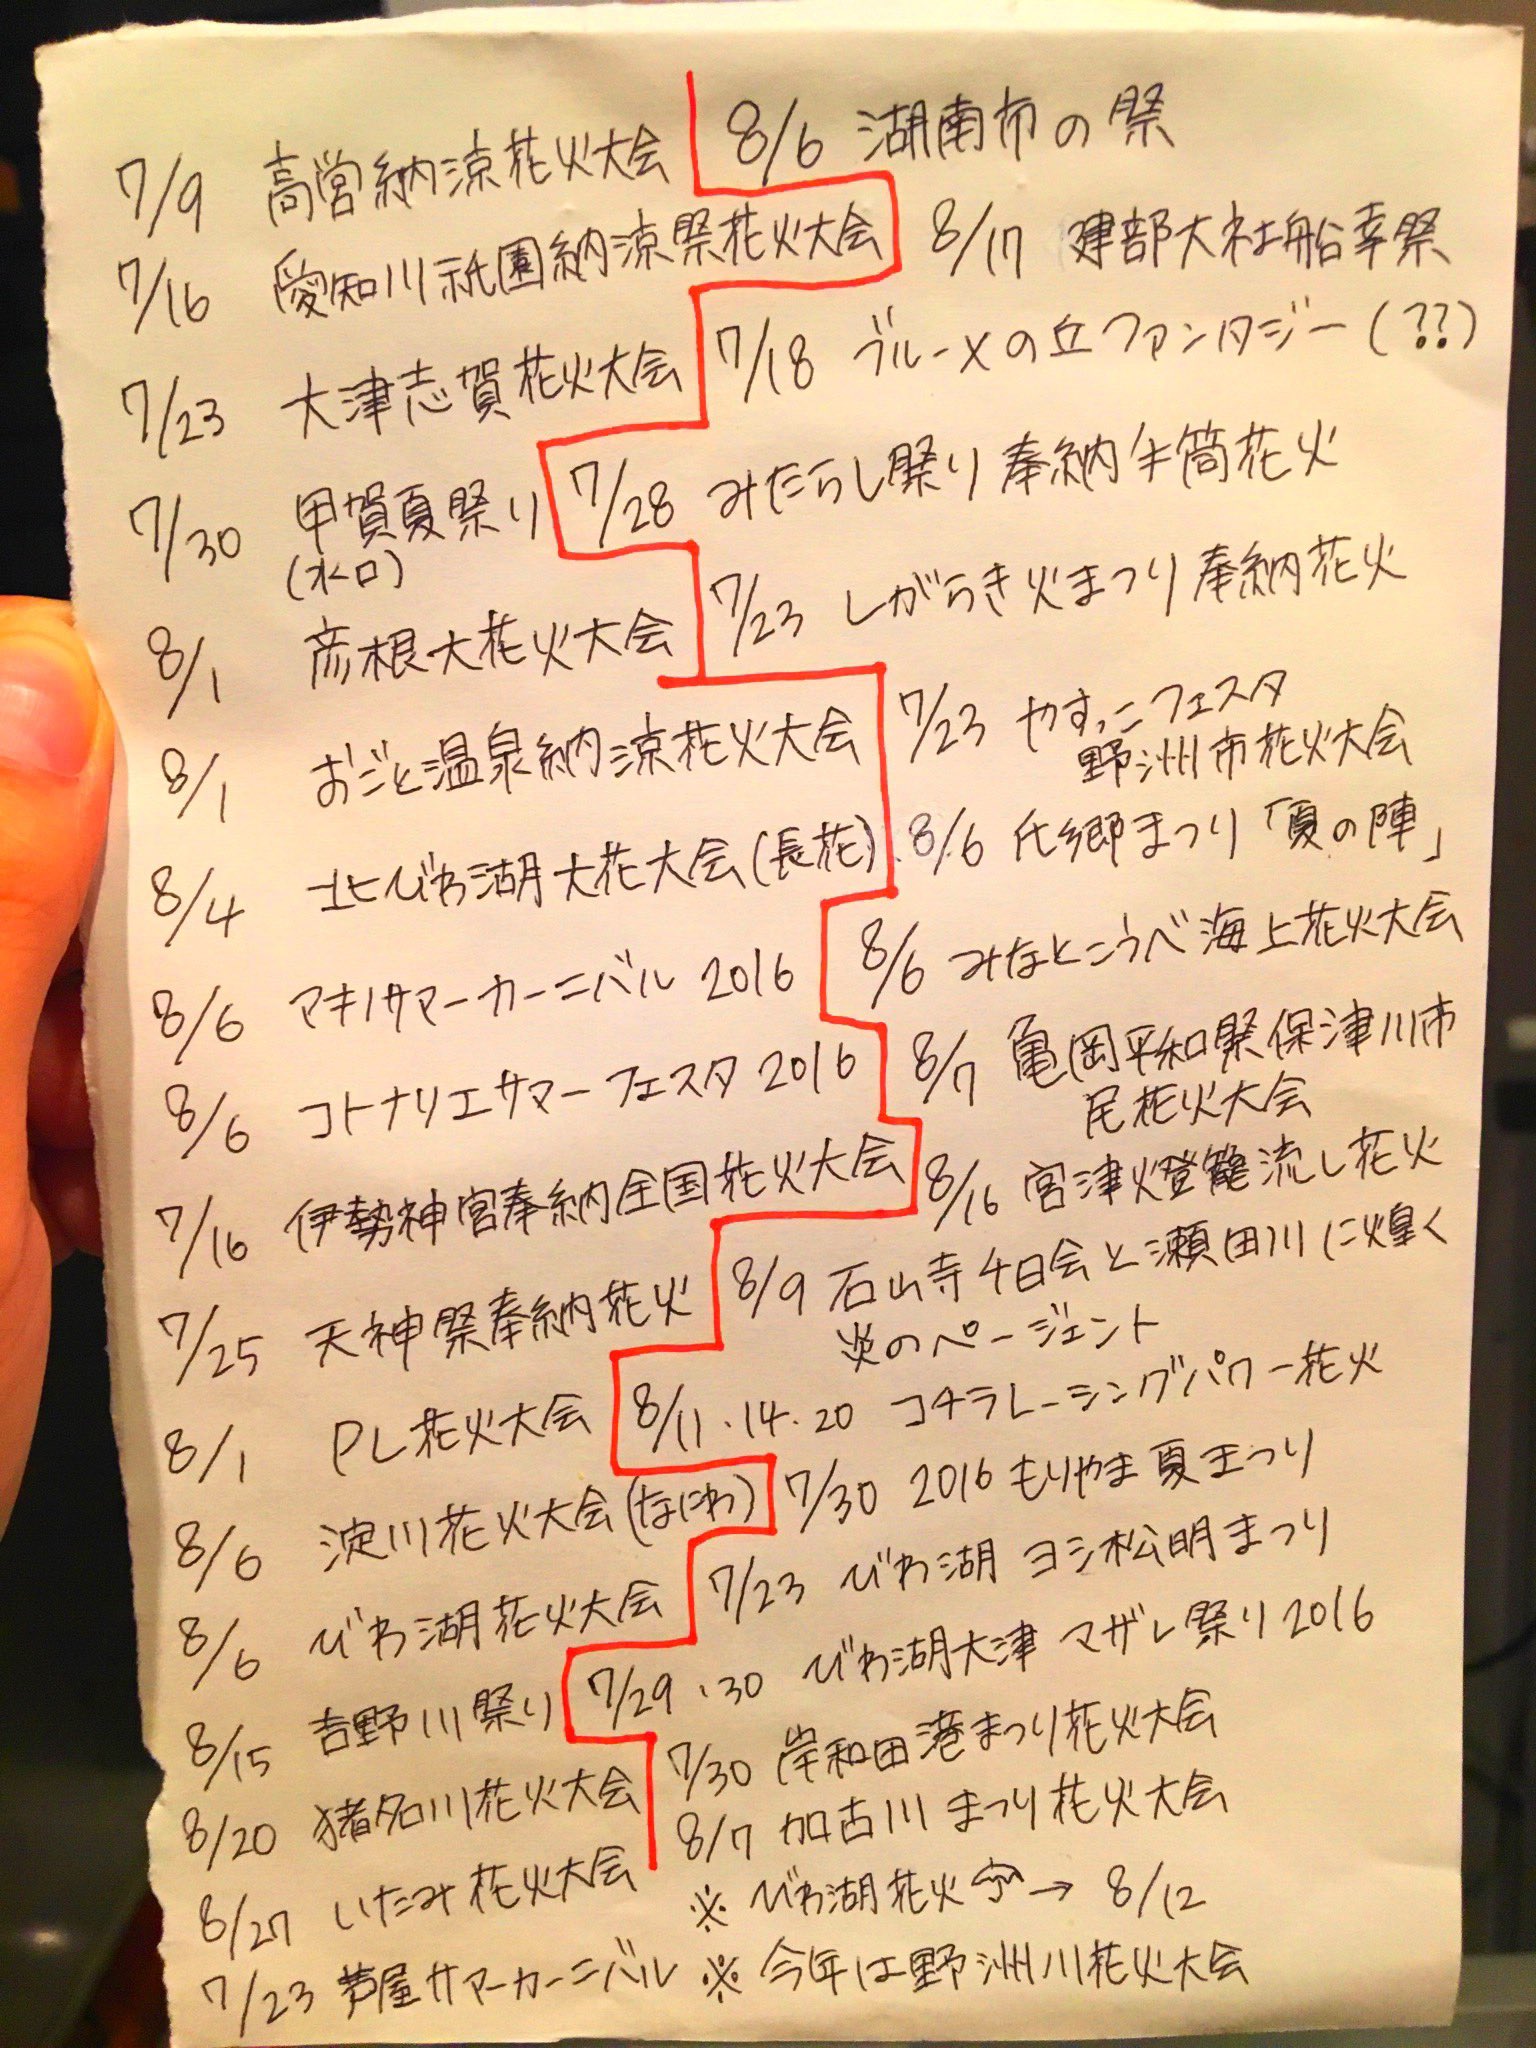 7/9 高営納涼花火大会
7/16 愛知川祇園納涼祭花火大会
7/23 大津志賀花火大会
7/30 甲賀夏祭り
(水口)
8/1 彦根大花火大会
8/1 おごと温泉納涼花火大会
8/4 北びわ湖大花大会(長花)
8/6 マキノサマーカーニバル 2016
8/6 コトナリエサマーフェスタ 2016
7/16 伊勢神宮奉納全国花火大会
7/25 天神祭奉納花火
8/1 PL花火大会
8/6 淀川花火大会(なにわ)
8/6 びわ湖花火大会
8/15 吉野川祭り
8/20 猪名川花火大会
8/27 いたみ花火大会
7/23 芦屋サマーカーニバル
8/6 湖南市の祭
8/17 建部大社船幸祭
7/18 ブルーメの丘ファンタジー(??)
7/28 みたらし祭り 奉納手筒花火
7/23 しがらき火まつり 奉納花火
7/23 やすっこフェスタ
野洲市花火大会
8/6 氏郷まつり「夏の陣」
8/6 みなとこうべ海上花火大会
8/7 亀岡平和祭保津川市
民花火大会
8/16 宮津燈籠流し花火
8/9 石山寺千日会と瀬田川に煌く
炎のページェント
8/11.14.20 コチラレーシングパワー花火
7/30 2016もりやま夏まつり
7/23 びわ湖 ヨシ松明まつり
7/29、30 びわ湖大津 マザレ祭り2016
7/30 岸和田港まつり花火大会
8/7 加古川まつり花火大会
※ びわ湖花火 → 8/12
※ 今年は野洲川花火大会